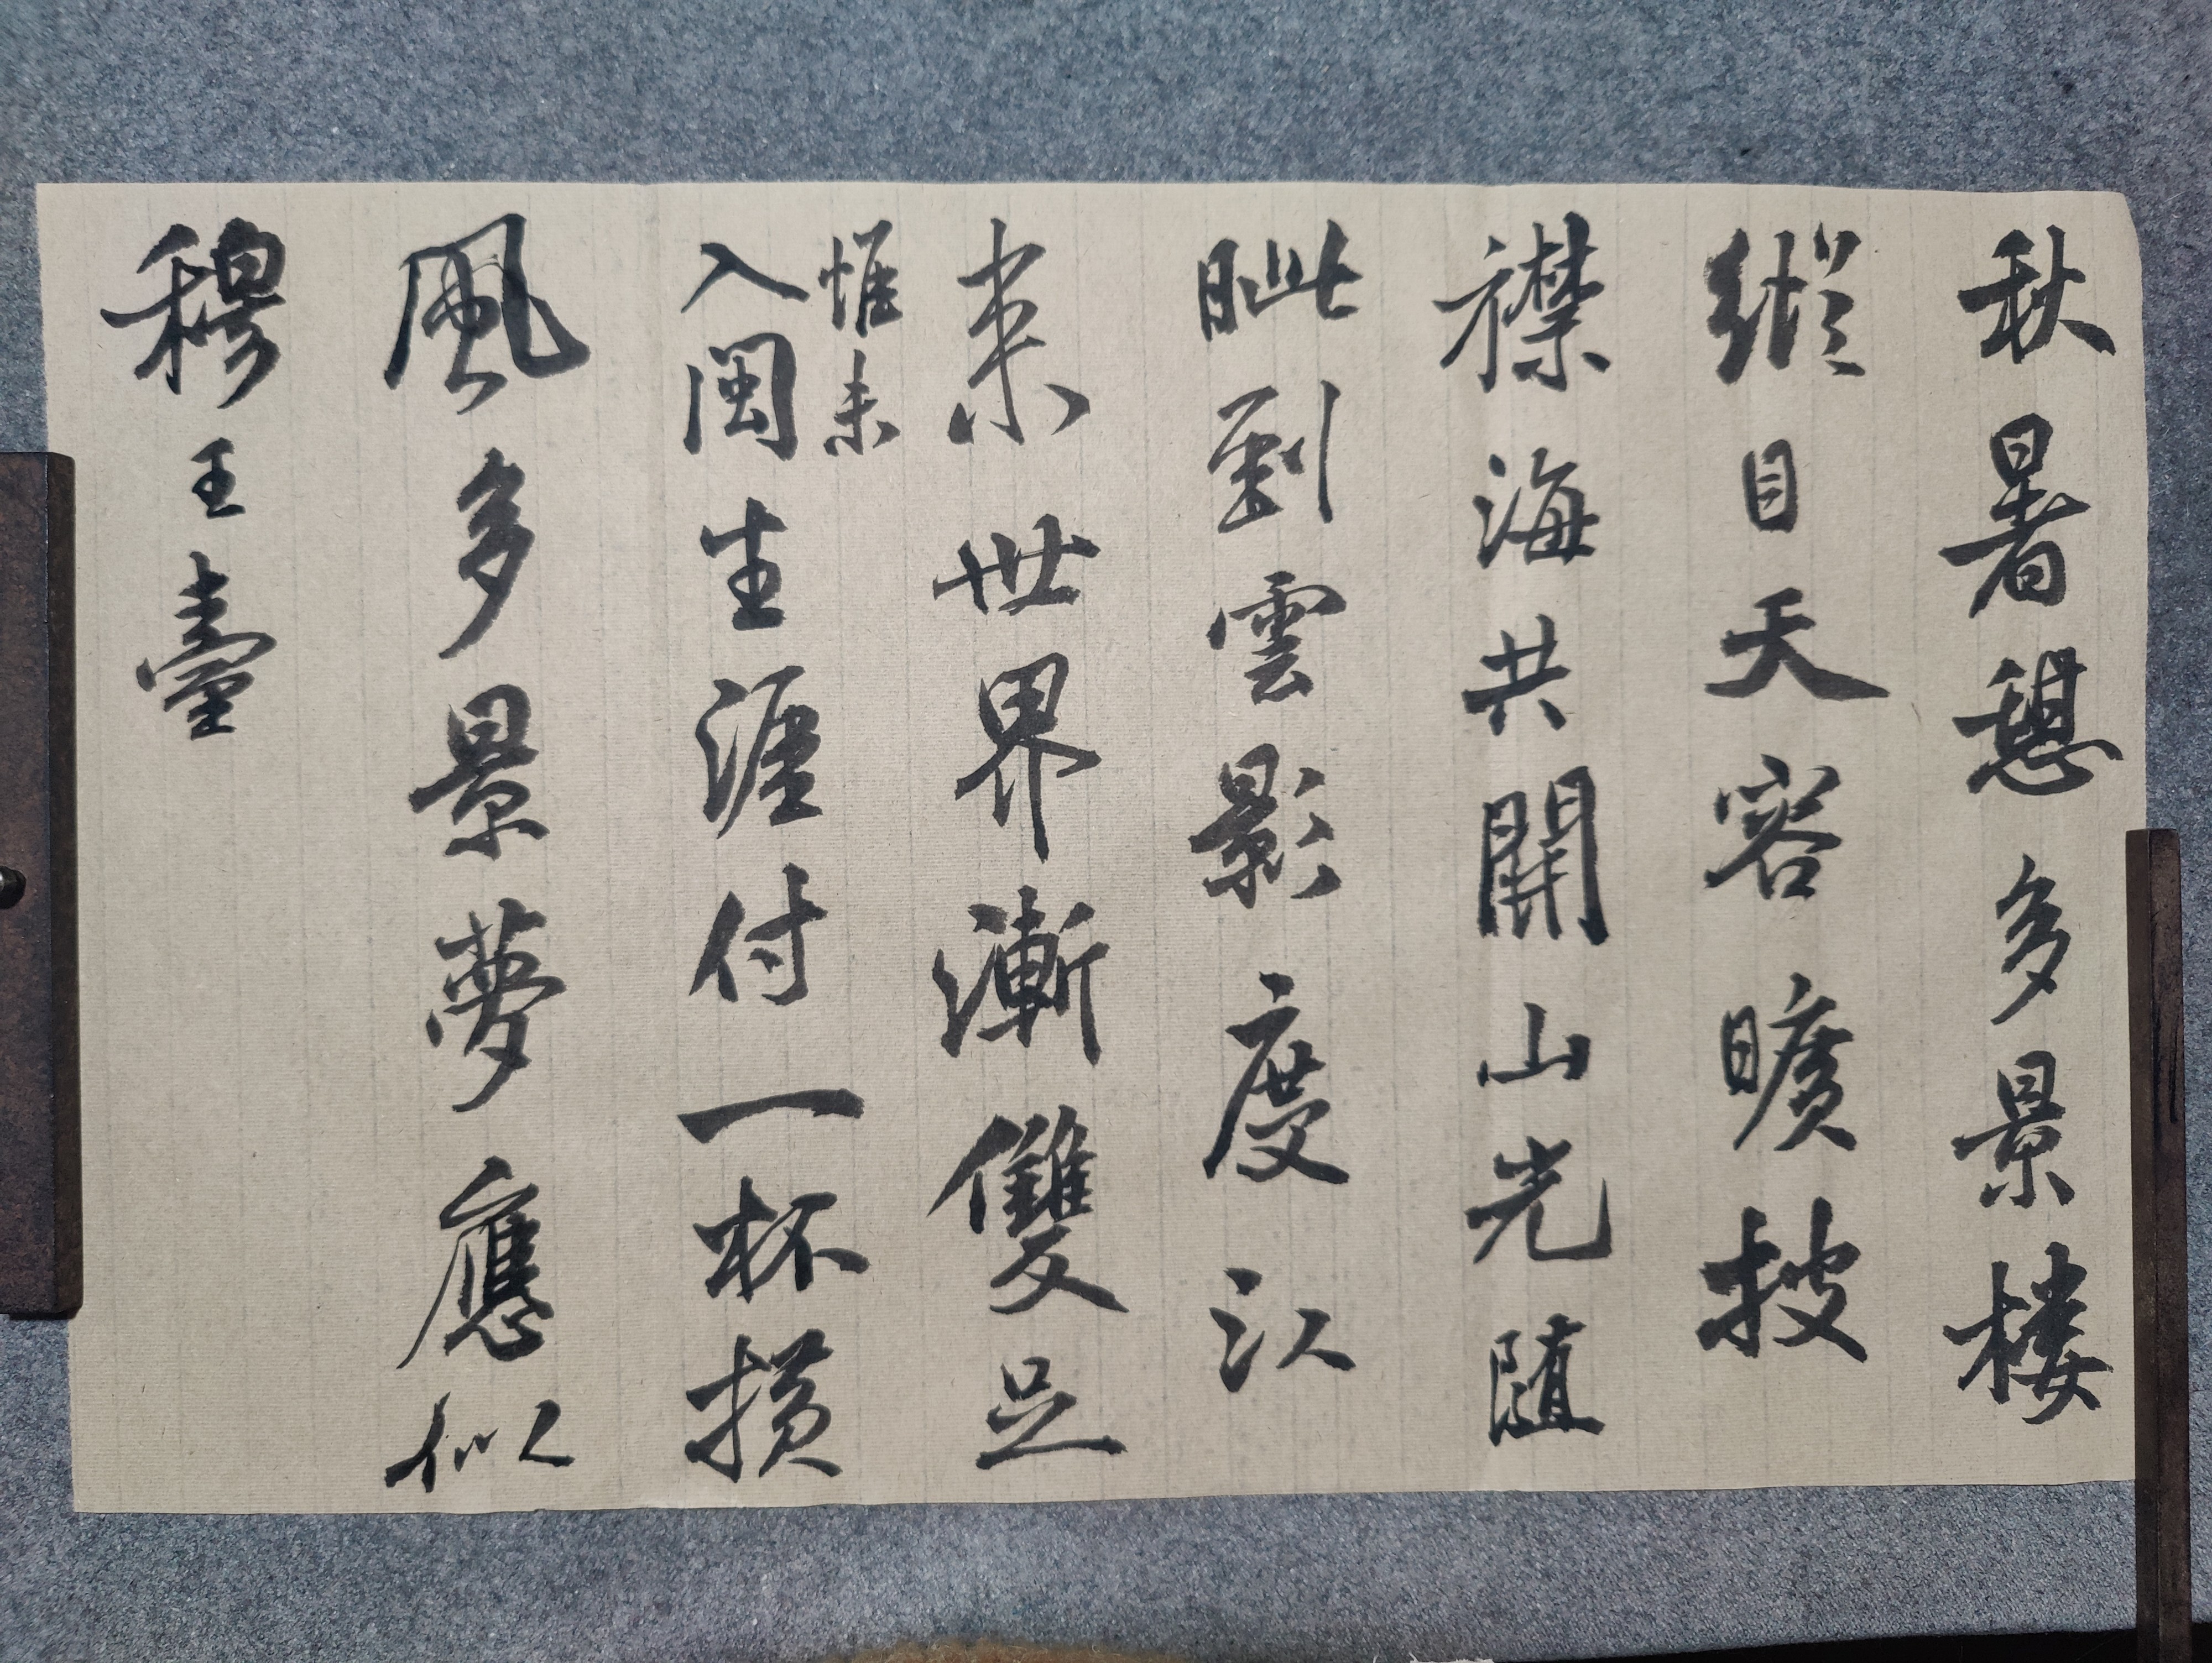 秋暑憩多景樓
縱目天容曠披
襟海共開山光随
眦到雲影度江
來世界漸雙足
惟未
入閩生涯付一杯横
風多景夢應似
穆王臺